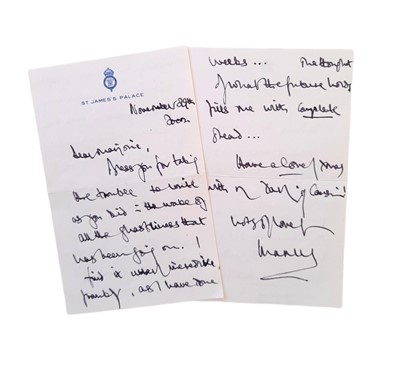 ST. JAMES'S PALACE
November 29th
2002.
Dear Marjorie,
Bless you for taking
the trouble to write
as you did in the wake of
all the ghastliness that
has been going on. I
find it utterly incredible
frankly, as I have done
weeks... The thought
of what the future holds
fills me with complete
dread...
Have a lovely Xmas
with my darling Cousin!
Lots of love